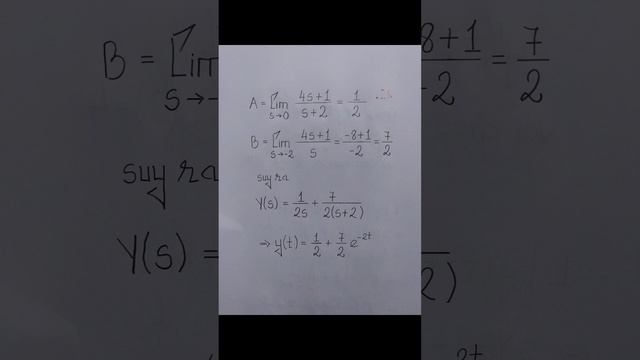 A = Lim s→0 4s+1/s+2 = 1/2
B = Lim s→-2 4s+1/s = -8+1/-2 = 7/2
suy ra
Y(s) = 1/2s + 7/2(s+2)
⇒ y(t) = 1/2 + 7/2 e^-2t